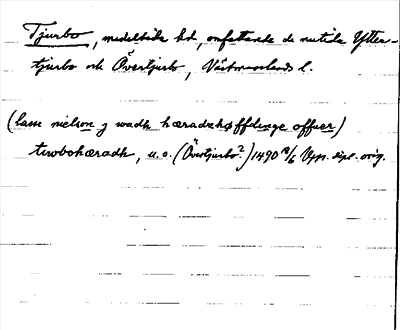 Tjurbo, medeltida hd, omfattande de nutida Ytter-
tjurbo och Övertjurbo, Västmanlands l.
(lasse nielson z wadh hæradzhøffdinge offuer)
tiwrbohæradh, u.o. (Övertjurbo?) 1490 18/6 Upps. dipl. orig.